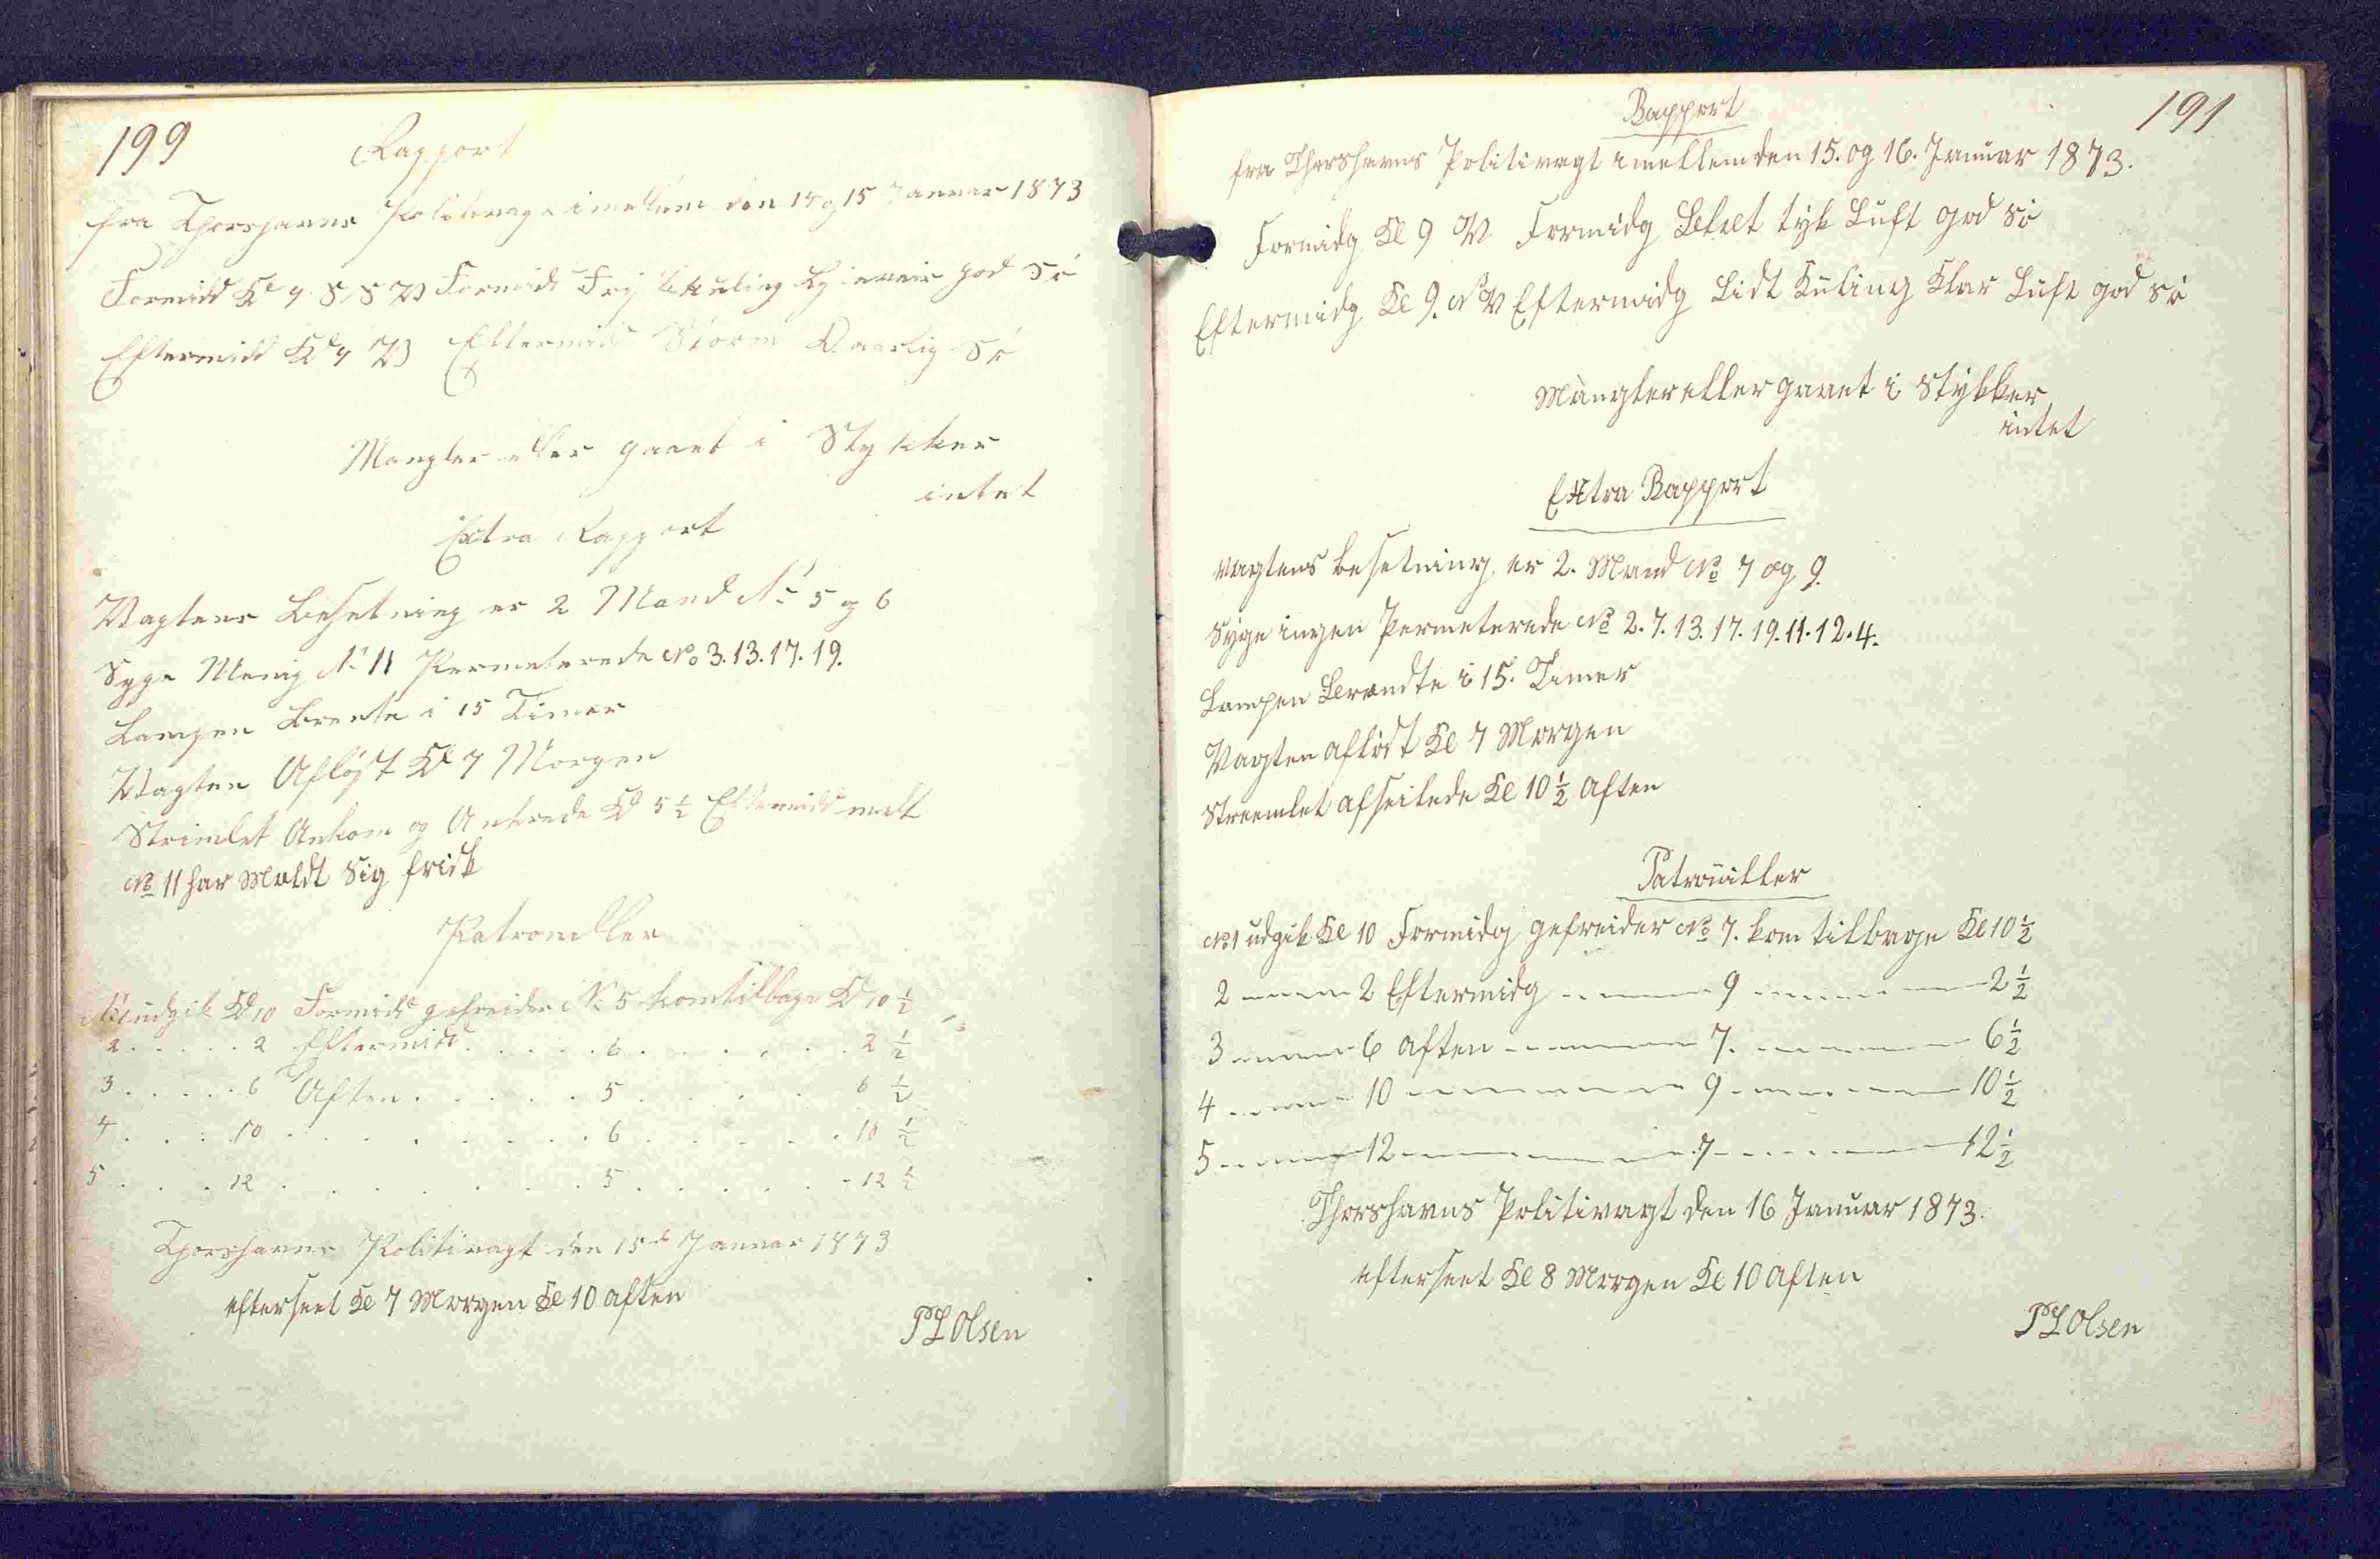 199
Rapport
fra Thorshavns Politivagt imellem den 14 og 15 Januar 1873
Formidd Kl 9 S.S.W Formidd Frij Kuling god Sö
Eftermidd Kl 9 W Eftermidd Storm Daarlig Sö
Mangler eller gaaet i Stykker
intet
Extra Rapport
Vagtens Besetning er 2 Mand No 5 og 6
Syge Menig No 11 Permeterede No 3. 13. 17. 19.
Lampen Brente i 15 Timer
Vagten Afløst Kl 7 Morgen
Strimlet Ankom og Ankrede Kl 5 1/2 Eftermidd
No 11 har Meldt Sig frisk
Patrouller
No 1 udgik Kl 10 Formidd gefreider No 5 kom tilbage Kl 10 1/2
2 . . . . . 2 Eftermidd . . . . . 6 . . . . . . 2 1/2
3 . . . . . 6 Aften . . . . . 5 . . . . . 6 1/2
4 . . . 10 . . . . . . . . 6 . . . . . 10 1/2
5 . . . 12 . . . . . . . 5 . . . . . 12 1/2
Thorshavns Politivagt den 15de Januar 1873
efterseet Kl 7 Morgen Kl 10 aften
P L Olsen
191
Rapport
fra Thorshavns Politivagt imellem den 15. og 16. Januar 1873.
Formidg Kl 9 W Formidg tyk Luft god Sö
Eftermidg Kl 9. NW Eftermidg Lidt Kuling Klar Luft god Sö
Mangler eller gaaet i Stykker
intet
Extra Rapport
vagtens besetning er 2. Mand No 7 og 9.
Syge ingen Permeterede No 2. 7. 13. 17. 19. 11. 12. 4.
Lampen Brændte i 15. Timer
Vagten aflöst Kl 7 Morgen
Streemlet afseilede Kl 10 1/2 Aften
Patrouiller
No 1 udgik Kl 10 Formidg gefreider No 7. kom tilbage Kl 10 1/2
2 ------ 2 Eftermidg ------ 9 ------ 2 1/2
3 ------ 6 aften ------ 7. ------ 6 1/2
4 ------ 10 ------ 9 ------ 10 1/2
5 ------ 12 ------ 7 ------ 12 1/2
Thorshavns Politivagt den 16 Januar 1873.
efterseet Kl 8 Morgen Kl 10 Aften
P L Olsen